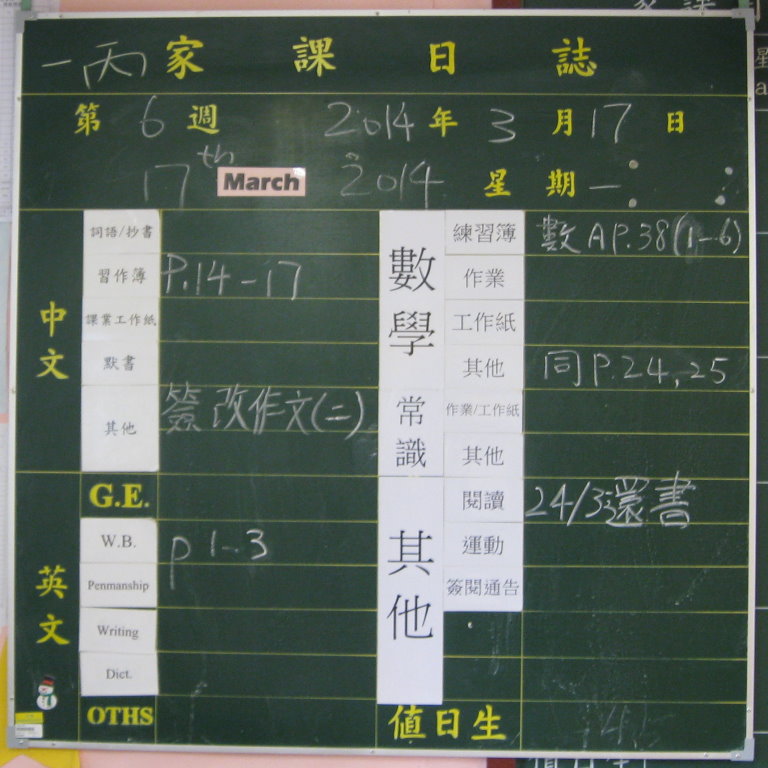 一丙家課日誌
第6週 2014年3月17日
17th March 2014 星期一
中文
詞語/抄書
習作簿 P.14-17
課業工作紙
默書
其他 簽改作文(二)
英文
G.E.
W.B. p 1-3
Penmanship
Writing
Dict.
OTHS
數學
練習簿 數 A P.38(1-6)
作業
工作紙
其他 同 P.24,25
常識
作業/工作紙
其他
其他
閱讀 24/3還書
運動
簽閱通告
值日生